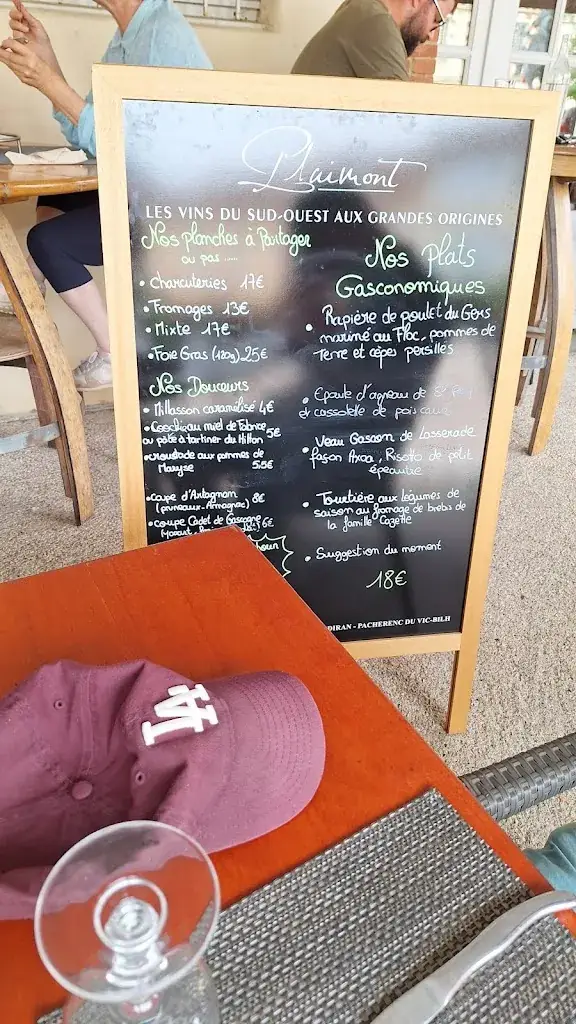 Plaimont
LES VINS DU SUD-OUEST AUX GRANDES ORIGINES
Nos planches à Partager
ou pas .....
• charcuteries 17€
• Fromages 13€
• Mixte 17€
• Foie Gras (120g) 25€
Nos Douceurs
• Millasson caramélisé 4€
ou pâte à tartiner du Hillon 5€
• croustade aux pommes de
Maryse 5.5€
• coupe d'Artagnan 8€
(pruneaux-Armagnac)
• coupe Cadet de Gascogne
6€
Nos Plats
Gasconomiques
• Rapière de poulet du Gers
mariné au Floc, pommes de
Terre et cèpes persillés
• Epaule d'agneau de
et cassolette de pois
• Veau Gascon de Lasserade
façon Axoa, Risotto de petit
épeautre
• Tourtière aux légumes de
saison au fromage de brebis de
la famille Cazette
• Suggestion du moment
18€
DIRAN - PACHERENC DU VIC-BILH
LA